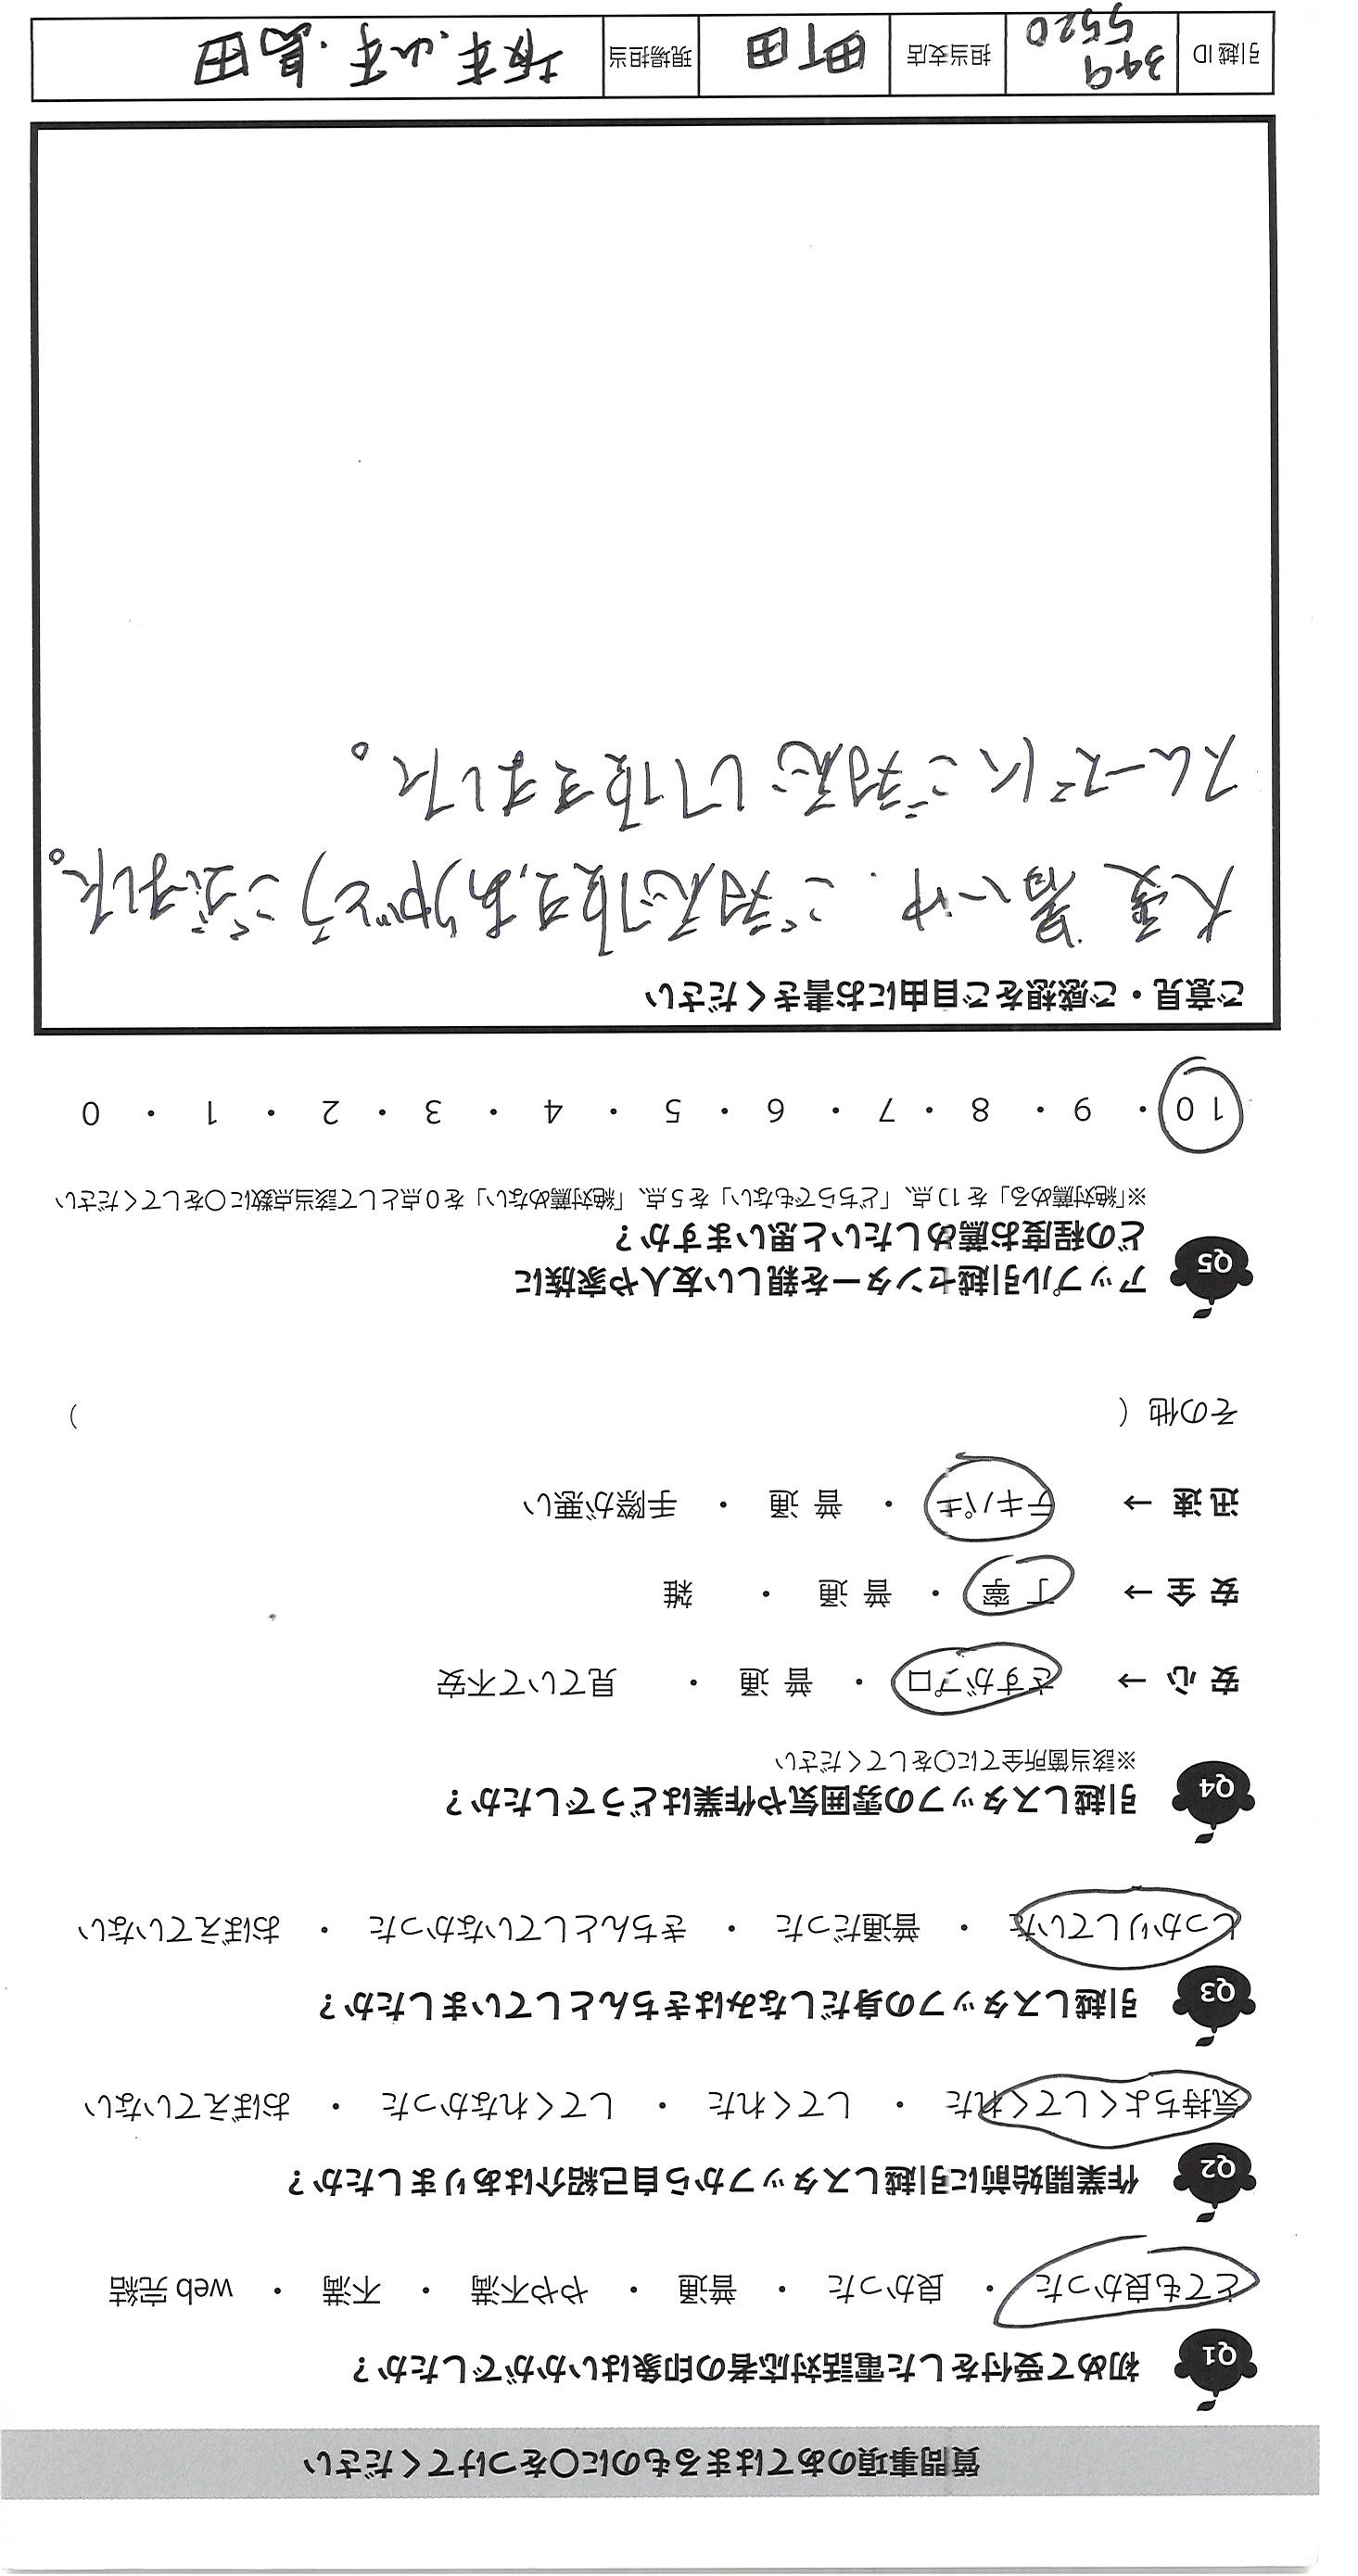 質問事項のあてはまるものに〇をつけてください
Q1 初めて受付をした電話対応者の印象はいかがでしたか？
とても良かった ・ 良かった ・ 普通 ・ やや不満 ・ 不満 ・ web 完結
Q2 作業開始前に引越しスタッフから自己紹介はありましたか？
気持ちよくしてくれた ・ してくれた ・ してくれなかった ・ おぼえていない
Q3 引越しスタッフの身だしなみはきちんとしていましたか？
しっかりしていた ・ 普通だった ・ きちんとしていなかった ・ おぼえていない
Q4 引越しスタッフの雰囲気や作業はどうでしたか？
※該当箇所全てに〇をしてください
安心 → さすがプロ ・ 普通 ・ 見ていて不安
安全 → 丁寧 ・ 普通 ・ 雑
迅速 → テキパキ ・ 普通 ・ 手際が悪い
その他（ ）
Q5 アップル引越センターを親しい友人や家族に
どの程度お薦めしたいと思いますか？
※「絶対薦める」を10点、「どちらでもない」を5点、「絶対薦めない」を0点として該当点数に〇をしてください
10 ・ 9 ・ 8 ・ 7 ・ 6 ・ 5 ・ 4 ・ 3 ・ 2 ・ 1 ・ 0
ご意見・ご感想をご自由にお書きください
大変暑い中、ご対応頂き、ありがとうございました。
スムーズにご対応して頂きました。
引越ID 349 5520 担当支店 町田 現場担当 坂本・山手・島田